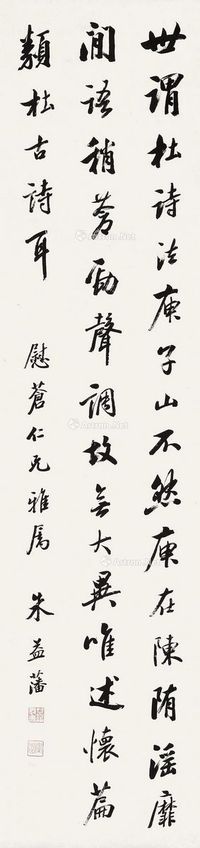 世谓杜詩法庾子山不然庾在陳隋淫靡
間語稍蒼勁聲調故無大異唯述懷篇
類杜古詩耳
慰蒼仁兄雅属 朱益藩